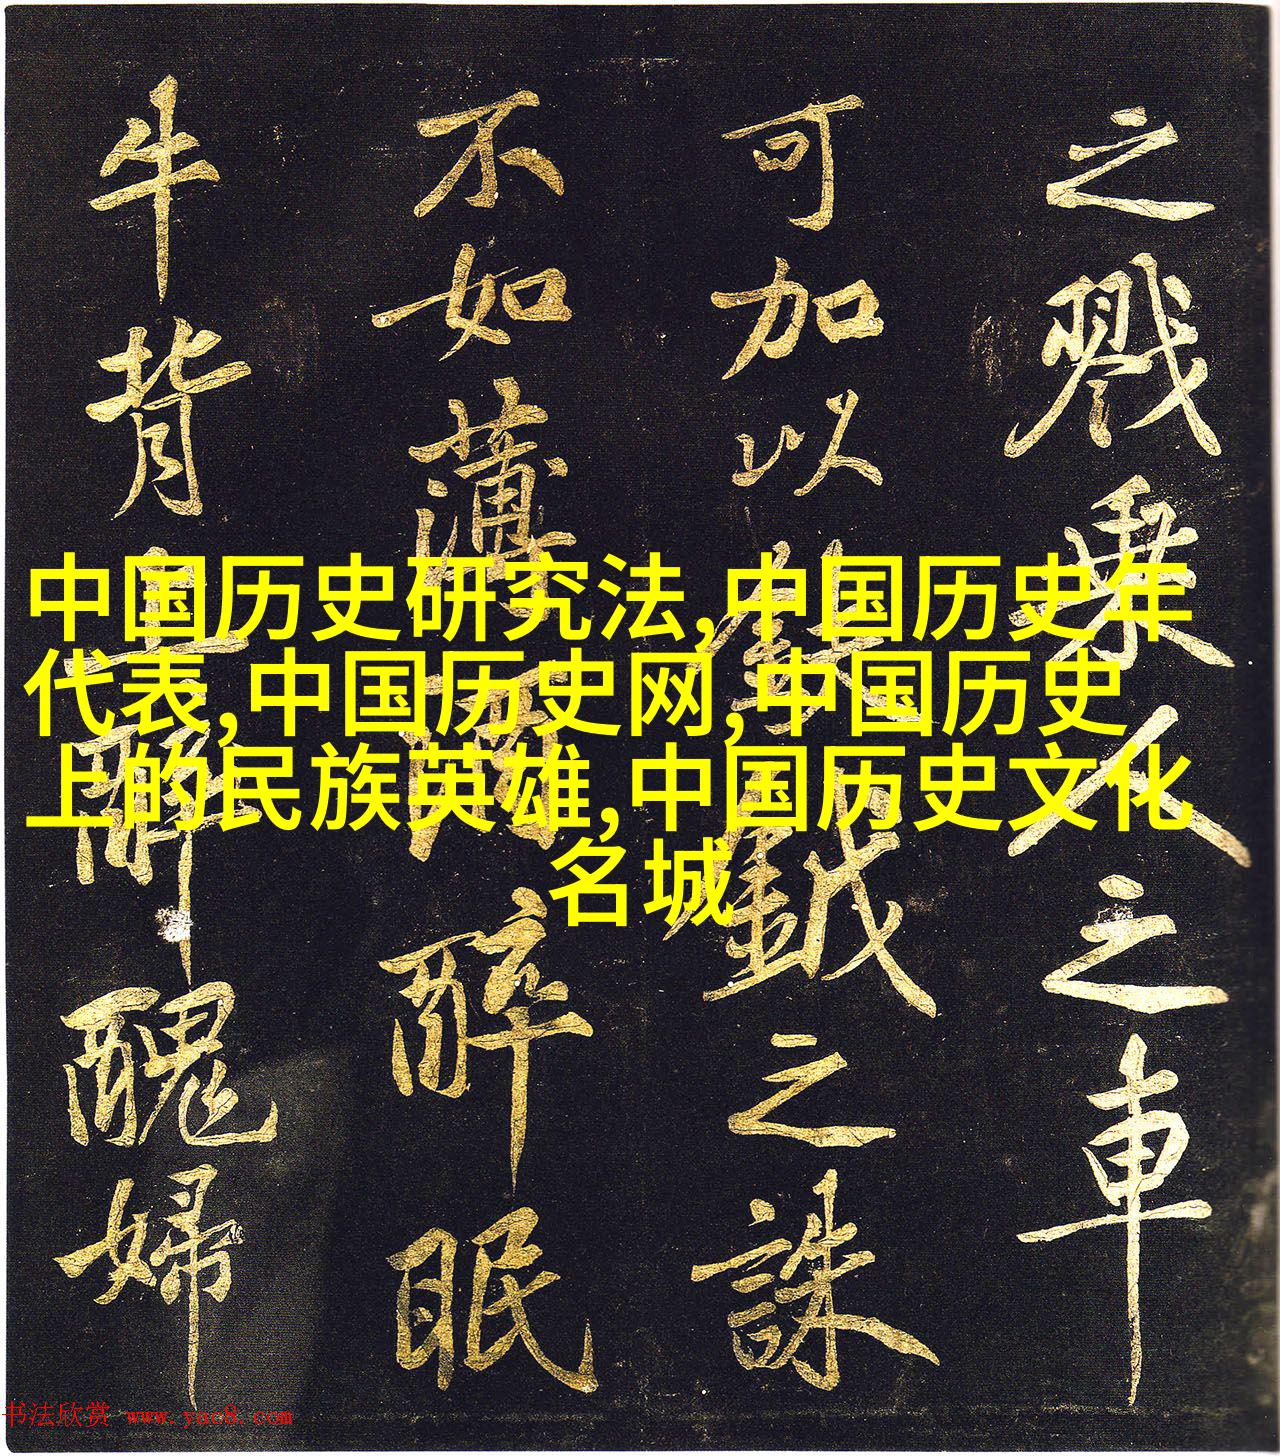 之戮乘人之車
可加以鈇鉞之誅
不如薄酒醉眠
牛背上醉醜婦
中国历史研究法,中国历史年
代表,中国历史网,中国历史
上的民族英雄,中国历史文化
名城
书法欣赏 www.yac8.com